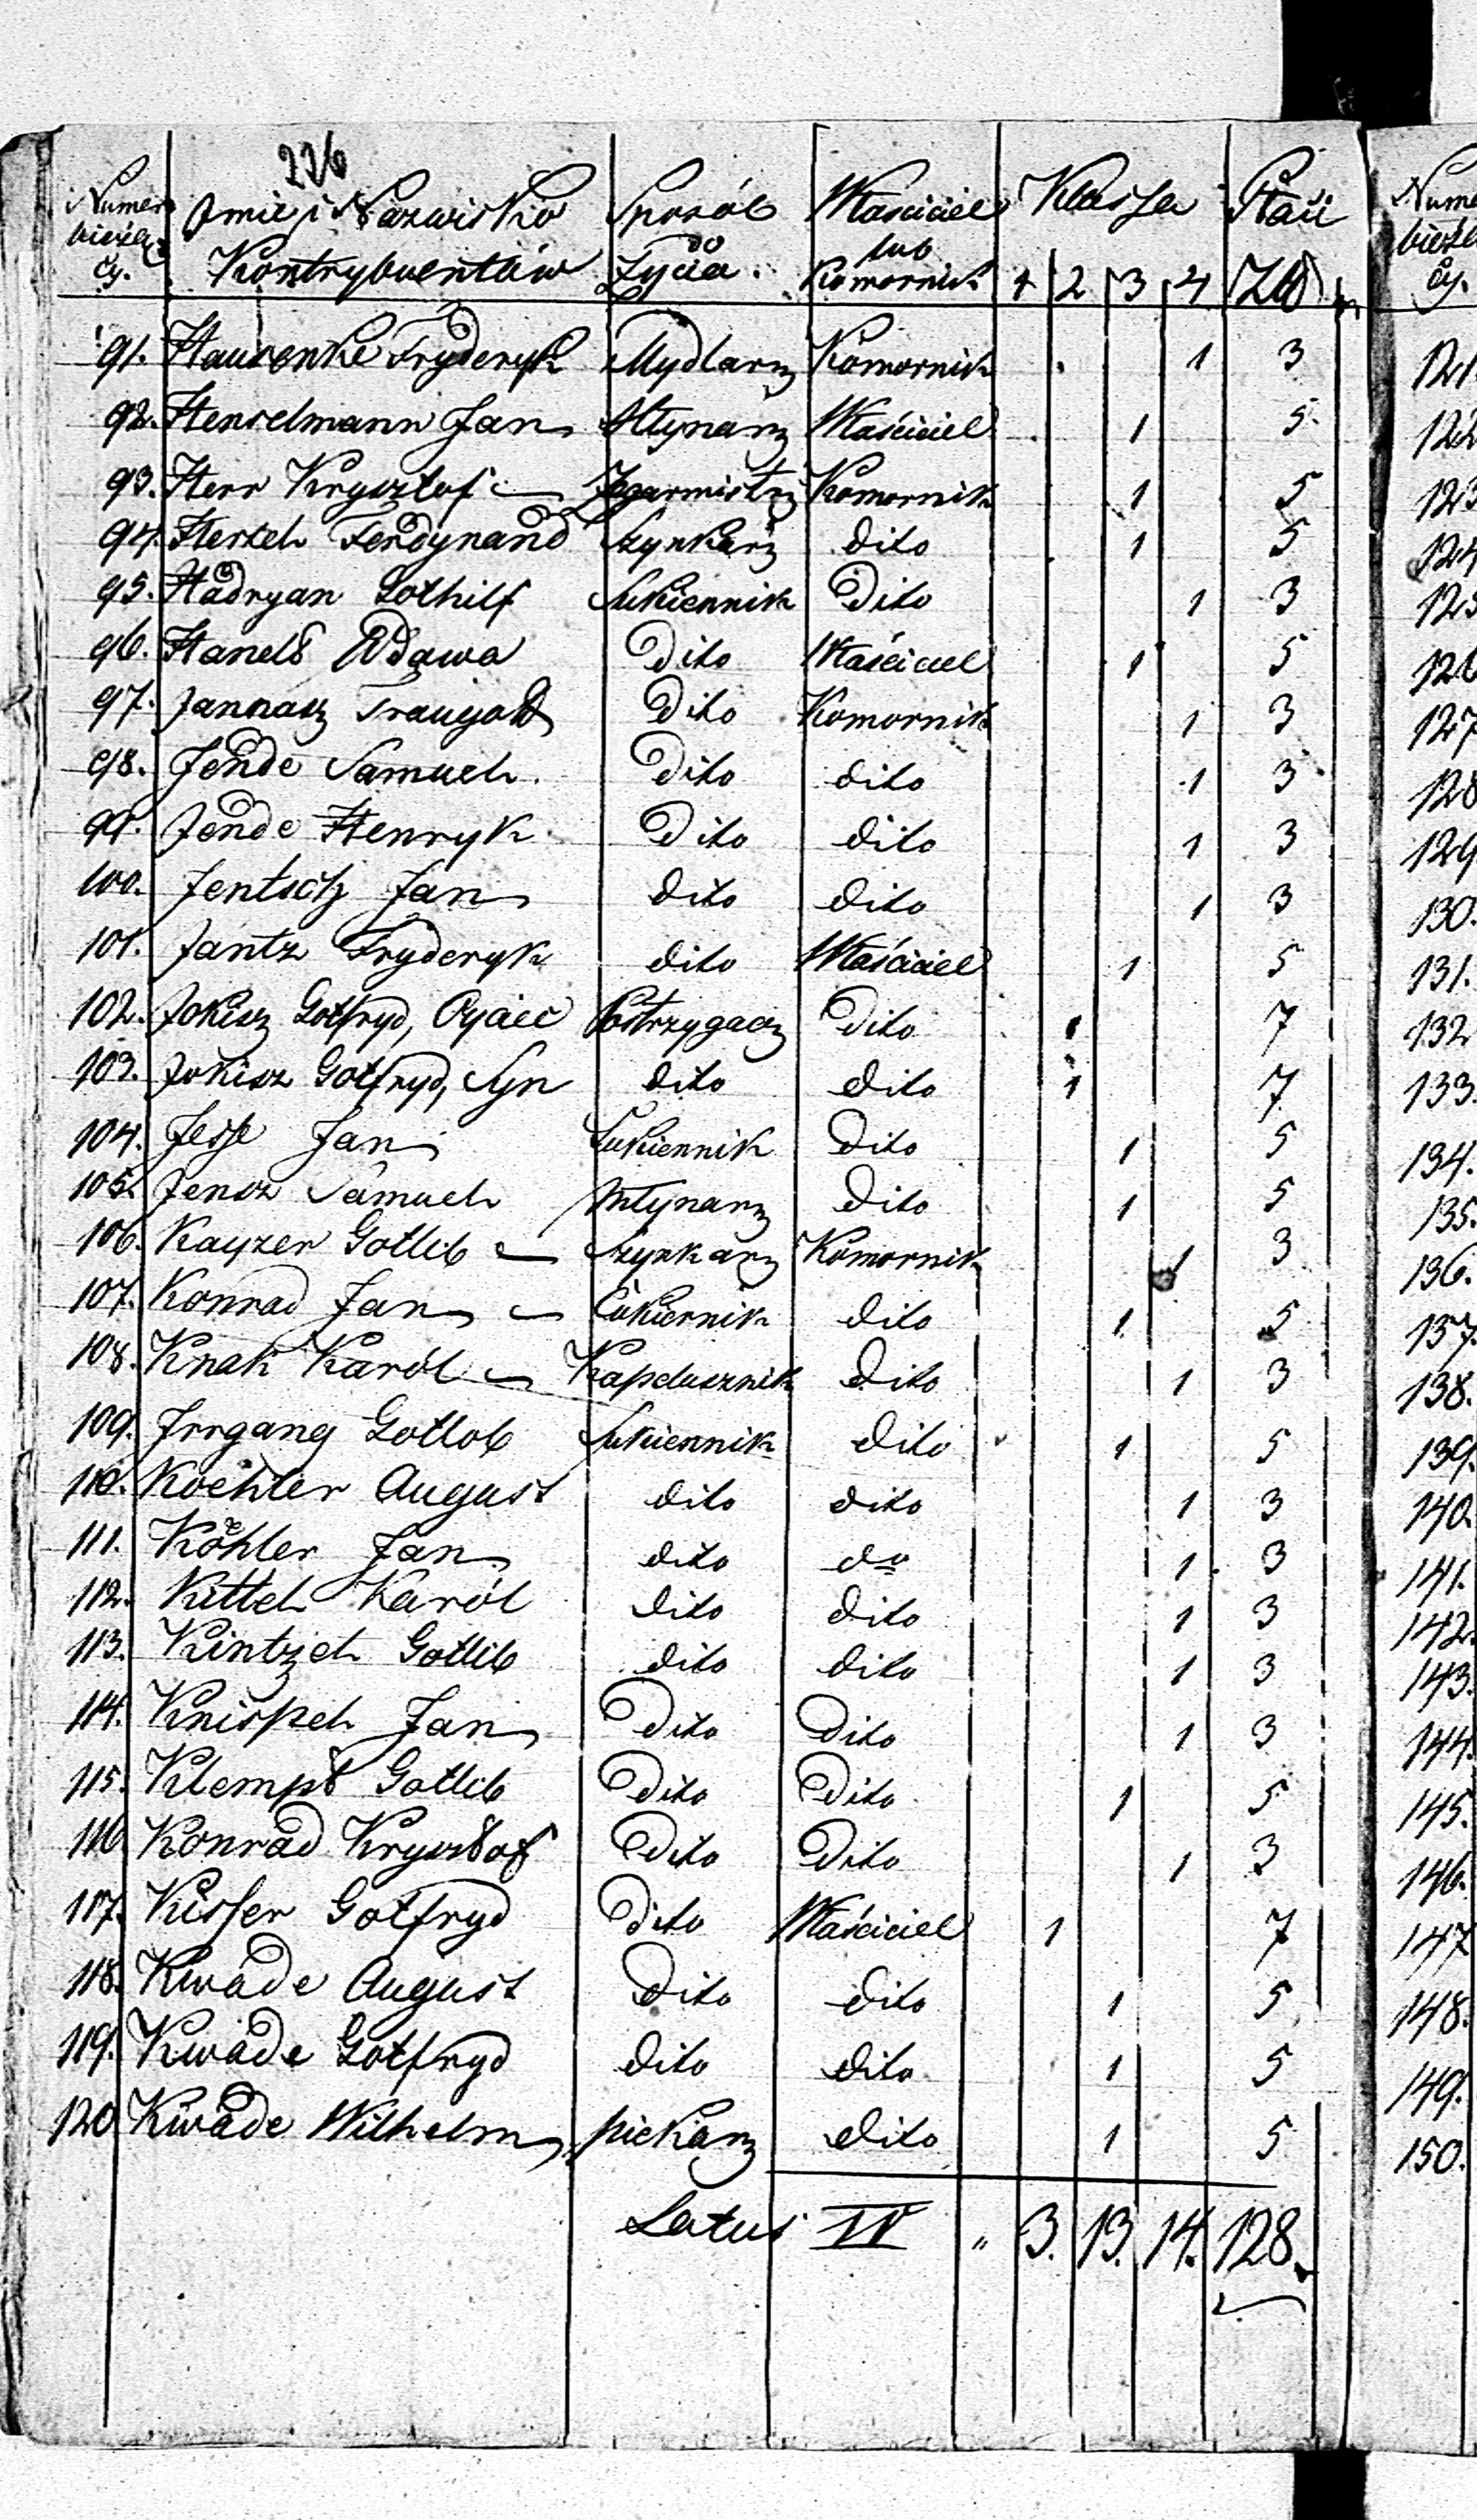 226
Numer bieżący. Jmie i Nazwisko Kontrybuentów Sposób Życia. Właściciel lub Komornik Klassa 1 2 3 4 Płaci Zł
91. Hausenke Fryderyk Mydlarz Komornik 1 3
92. Henselmann Jan Młynarz Właściciel 1 5
93. Herr Krysztof Zegarmistrz Komornik 1 5
94. Hertel Ferdynand Szynkarz dito 1 5
95. Hadryan Gothilf Sukiennik Dito 1 3
96. Hanelt Wdawa Dito Właściciel 1 5
97. Jannasz Traugott Dito Komornik 1 3
98. Jende Samuel Dito dito 1 3
99. Jende Henryk Dito dito 1 3
100. Jentsch Jan dito dito 1 3
101. Jantz Fryderyk dito Właściciel 1 5
102. Jokisz Gotfryd, Oyciec Postrzygacz Dito 1 7
103. Jokisz Gotfryd, Syn dito dito 1 7
104. Jesse Jan Sukiennik Dito 1 5
105. Jensz Samuel Młynarz Dito 1 5
106. Kayzer Gotlib Szynkarz Komornik 1 3
107. Konrad Jan Cukiernik dito 1 5
108. Knak Karól Kapelusznik Dito 1 3
109. Irrgang Gotlob Sukiennik dito 1 5
110. Koehler August dito dito 1 3
111. Köhler Jan dito do 1 3
112. Kittel Karól dito dito 1 3
113. Kintzel Gotlib dito dito 1 3
114. Knispel Jan Dito Dito 1 3
115. Klempt Gotlib Dito Dito 1 5
116 Konrad Krysztof Dito Dito 1 3
117. Kisser Gotfryd Dito Właściciel 1 7
118. Kwade August Dito dito 1 5
119. Kwade Gotfryd dito dito 1 5
120 Kwade Wilhelm piekarz dito 1 5
Latus IV " 3. 13. 14. 128.
Nume bieżą cy.
121.
122
123
124
125
126
127
128
129
130.
131.
132
133.
134.
135.
136.
137.
138.
139.
140.
141.
142.
143.
144.
145.
146.
147
148.
149.
150.